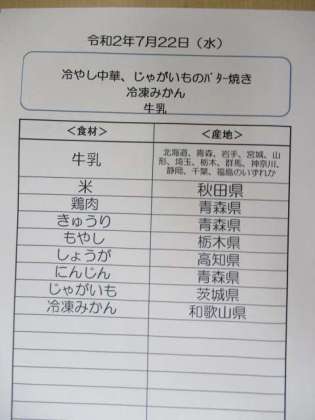 令和2年7月22日（水）
冷やし中華、じゃがいものﾊﾞﾀｰ焼き
冷凍みかん
牛乳
＜食材＞ ＜産地＞
牛乳 北海道、青森、岩手、宮城、山
形、埼玉、栃木、群馬、神奈川、
静岡、千葉、福島のいずれか
米 秋田県
鶏肉 青森県
きゅうり 青森県
もやし 栃木県
しょうが 高知県
にんじん 青森県
じゃがいも 茨城県
冷凍みかん 和歌山県